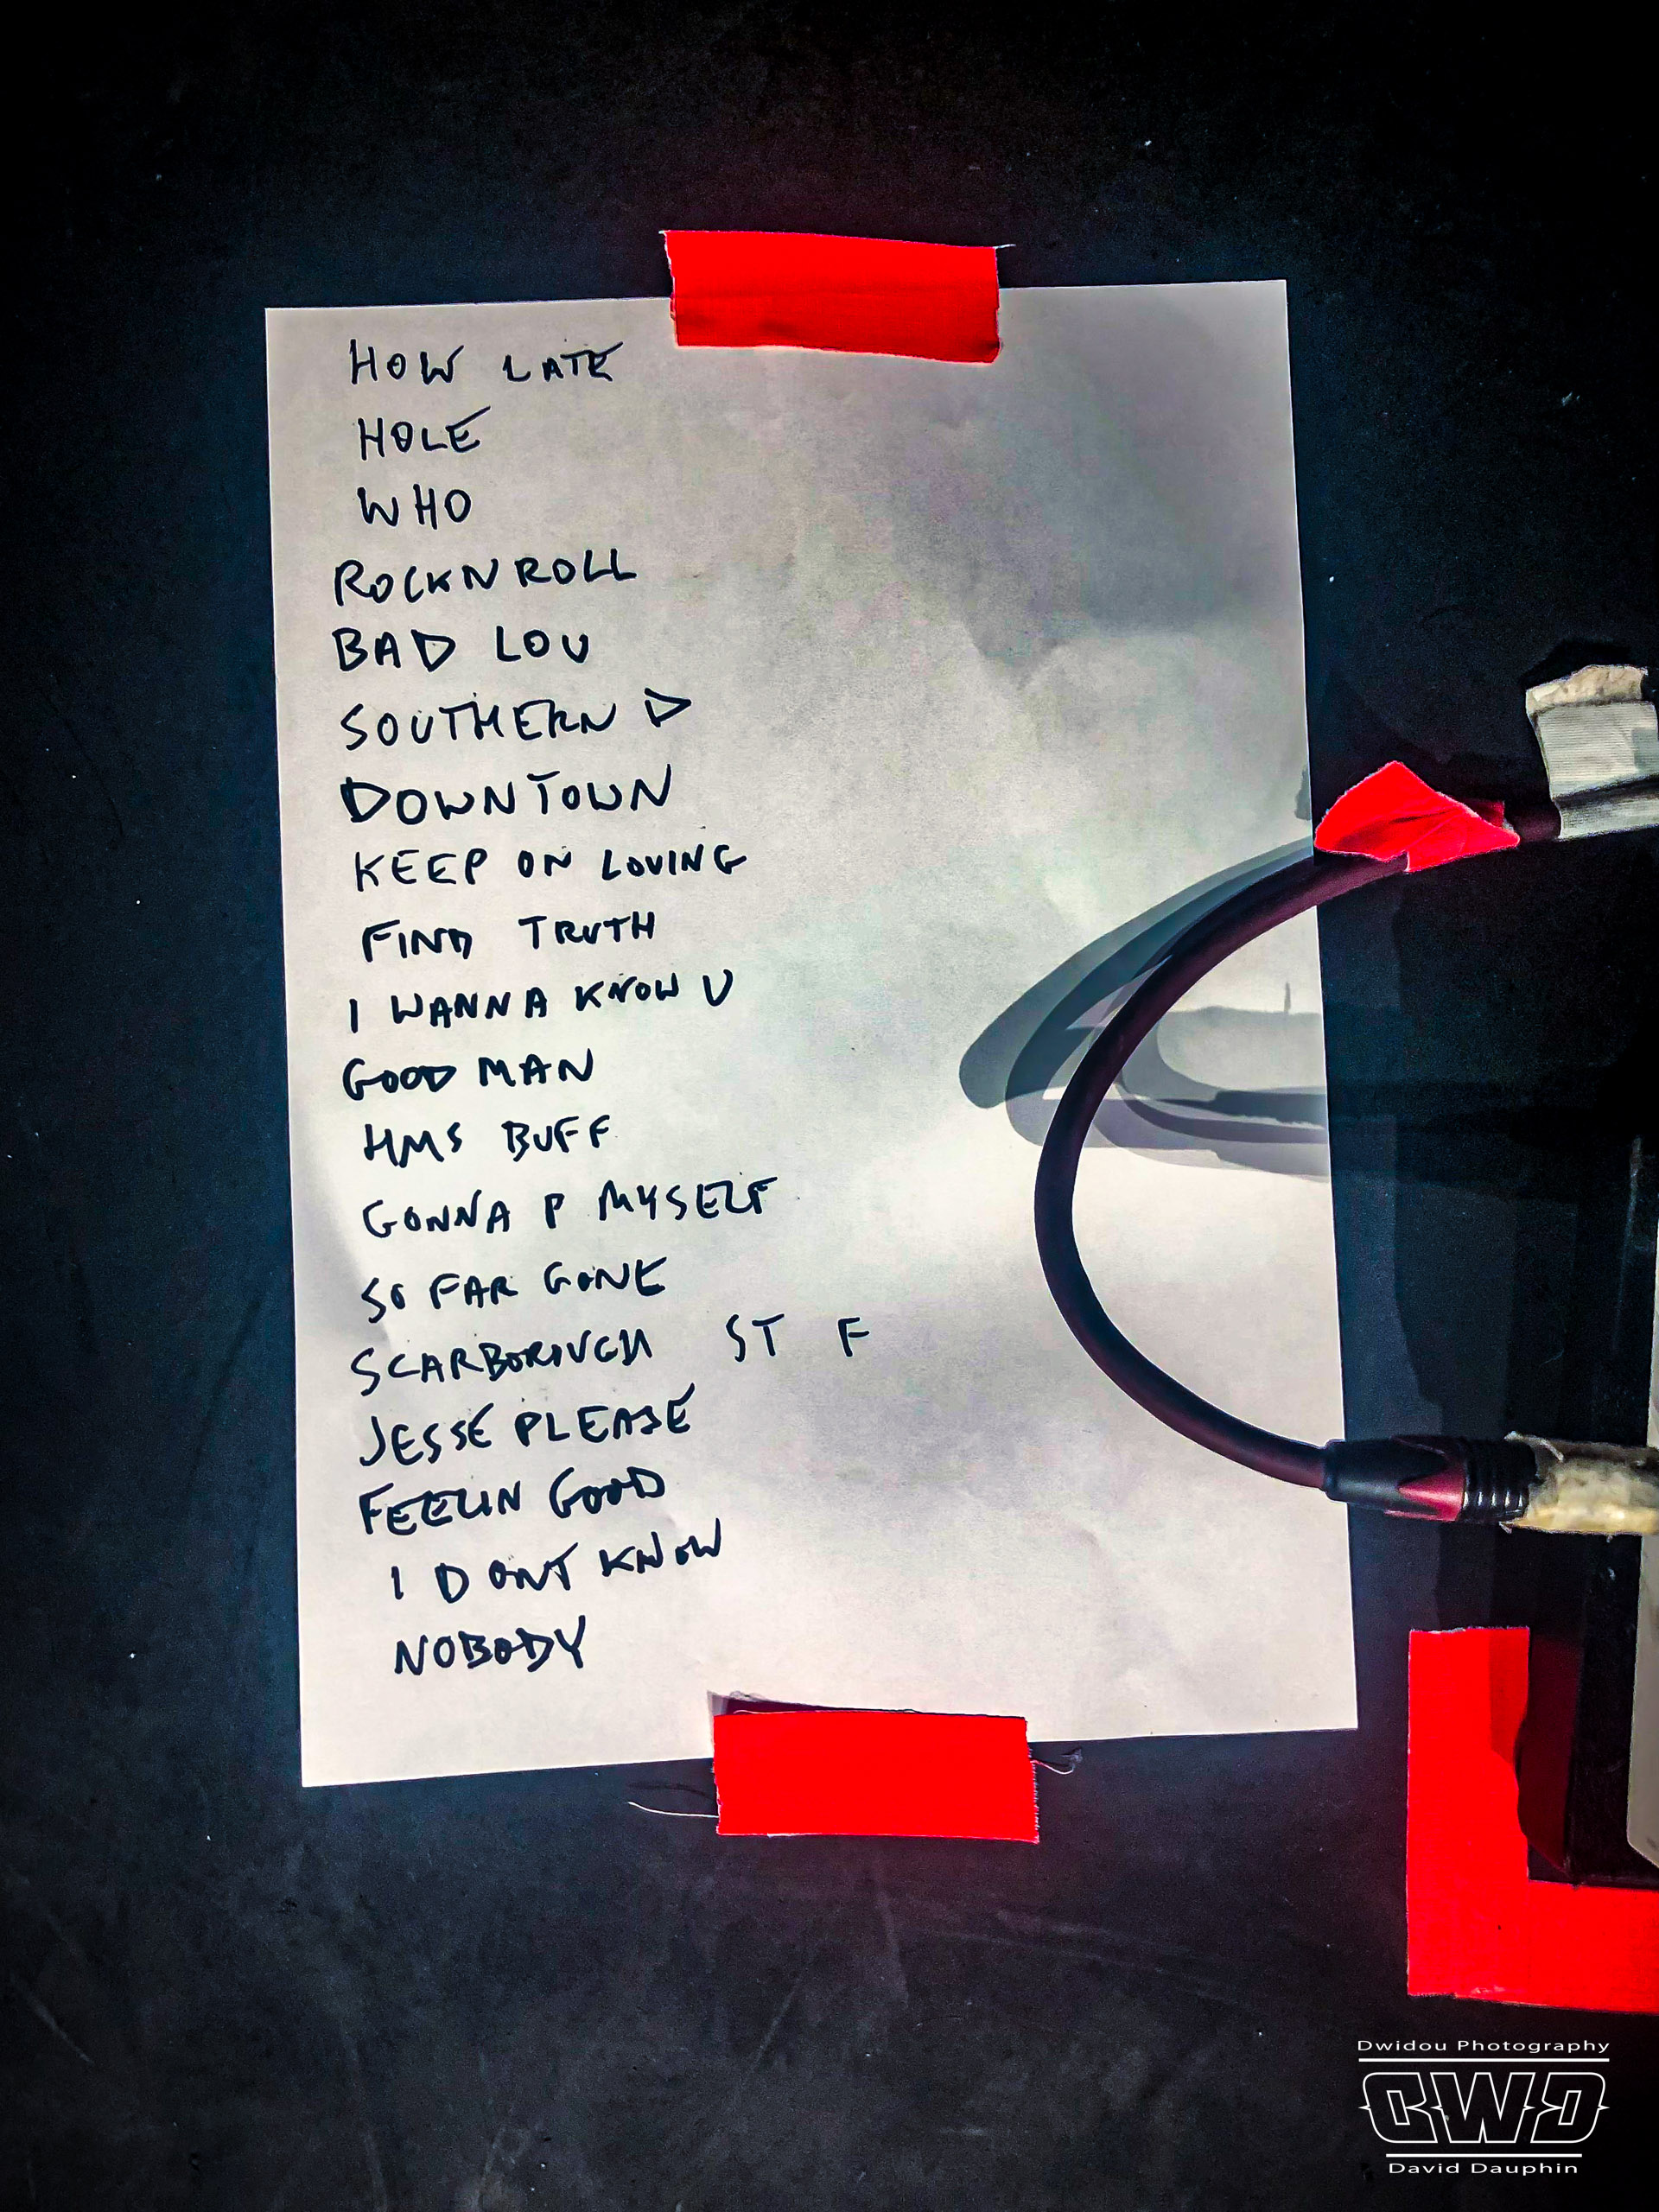 HOW LATE
HOLE
WHO
ROCKNROLL
BAD LOU
SOUTHERN D
DOWNTOWN
KEEP ON LOVING
FIND TRUTH
I WANNA KNOW U
GOOD MAN
HMS BUFF
GONNA P MYSELF
SO FAR GONE
SCARBOROUGH ST F
JESSE PLEASE
FEELIN GOOD
I DONT KNOW
NOBODY
Dwidou Photography
DWD
David Dauphin